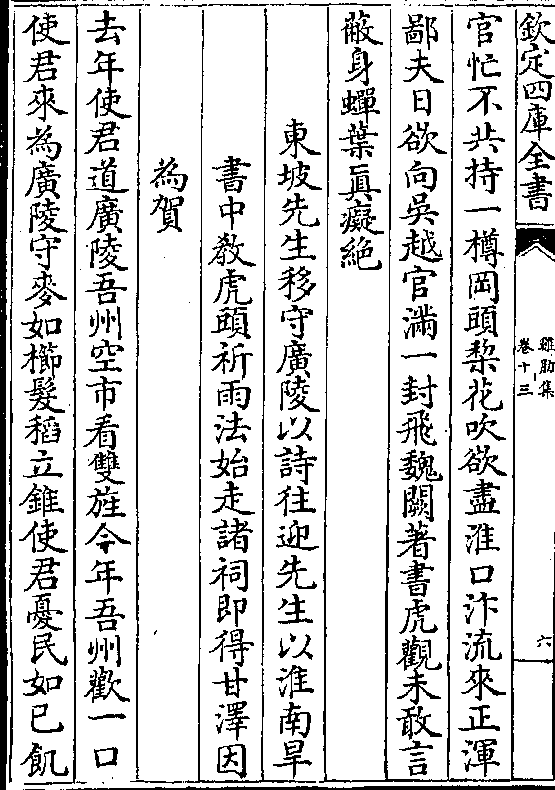 欽定四庫全書
雞肋集
卷十三
六
官忙不共持一樽岡頭梨花吹欲盡淮口汴流來正渾
鄙夫日欲向吳越官滿一封飛魏闕著書虎觀未敢言
蔽身蟬葉眞癡絶
東坡先生移守廣陵以詩往迎先生以淮南旱
書中教虎頭祈雨法始走諸祠即得甘澤因
為賀
去年使君道廣陵吾州空市看雙旌今年吾州歡一口
使君來為廣陵守麥如櫛髮稻立錐使君憂民如已飢